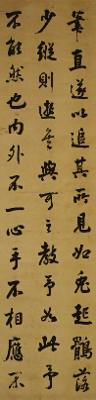 筆直遂以追其所見如兔起鶻落
少縱則逝矣與可之教予如此予
不能然也内外不一心手不相應不